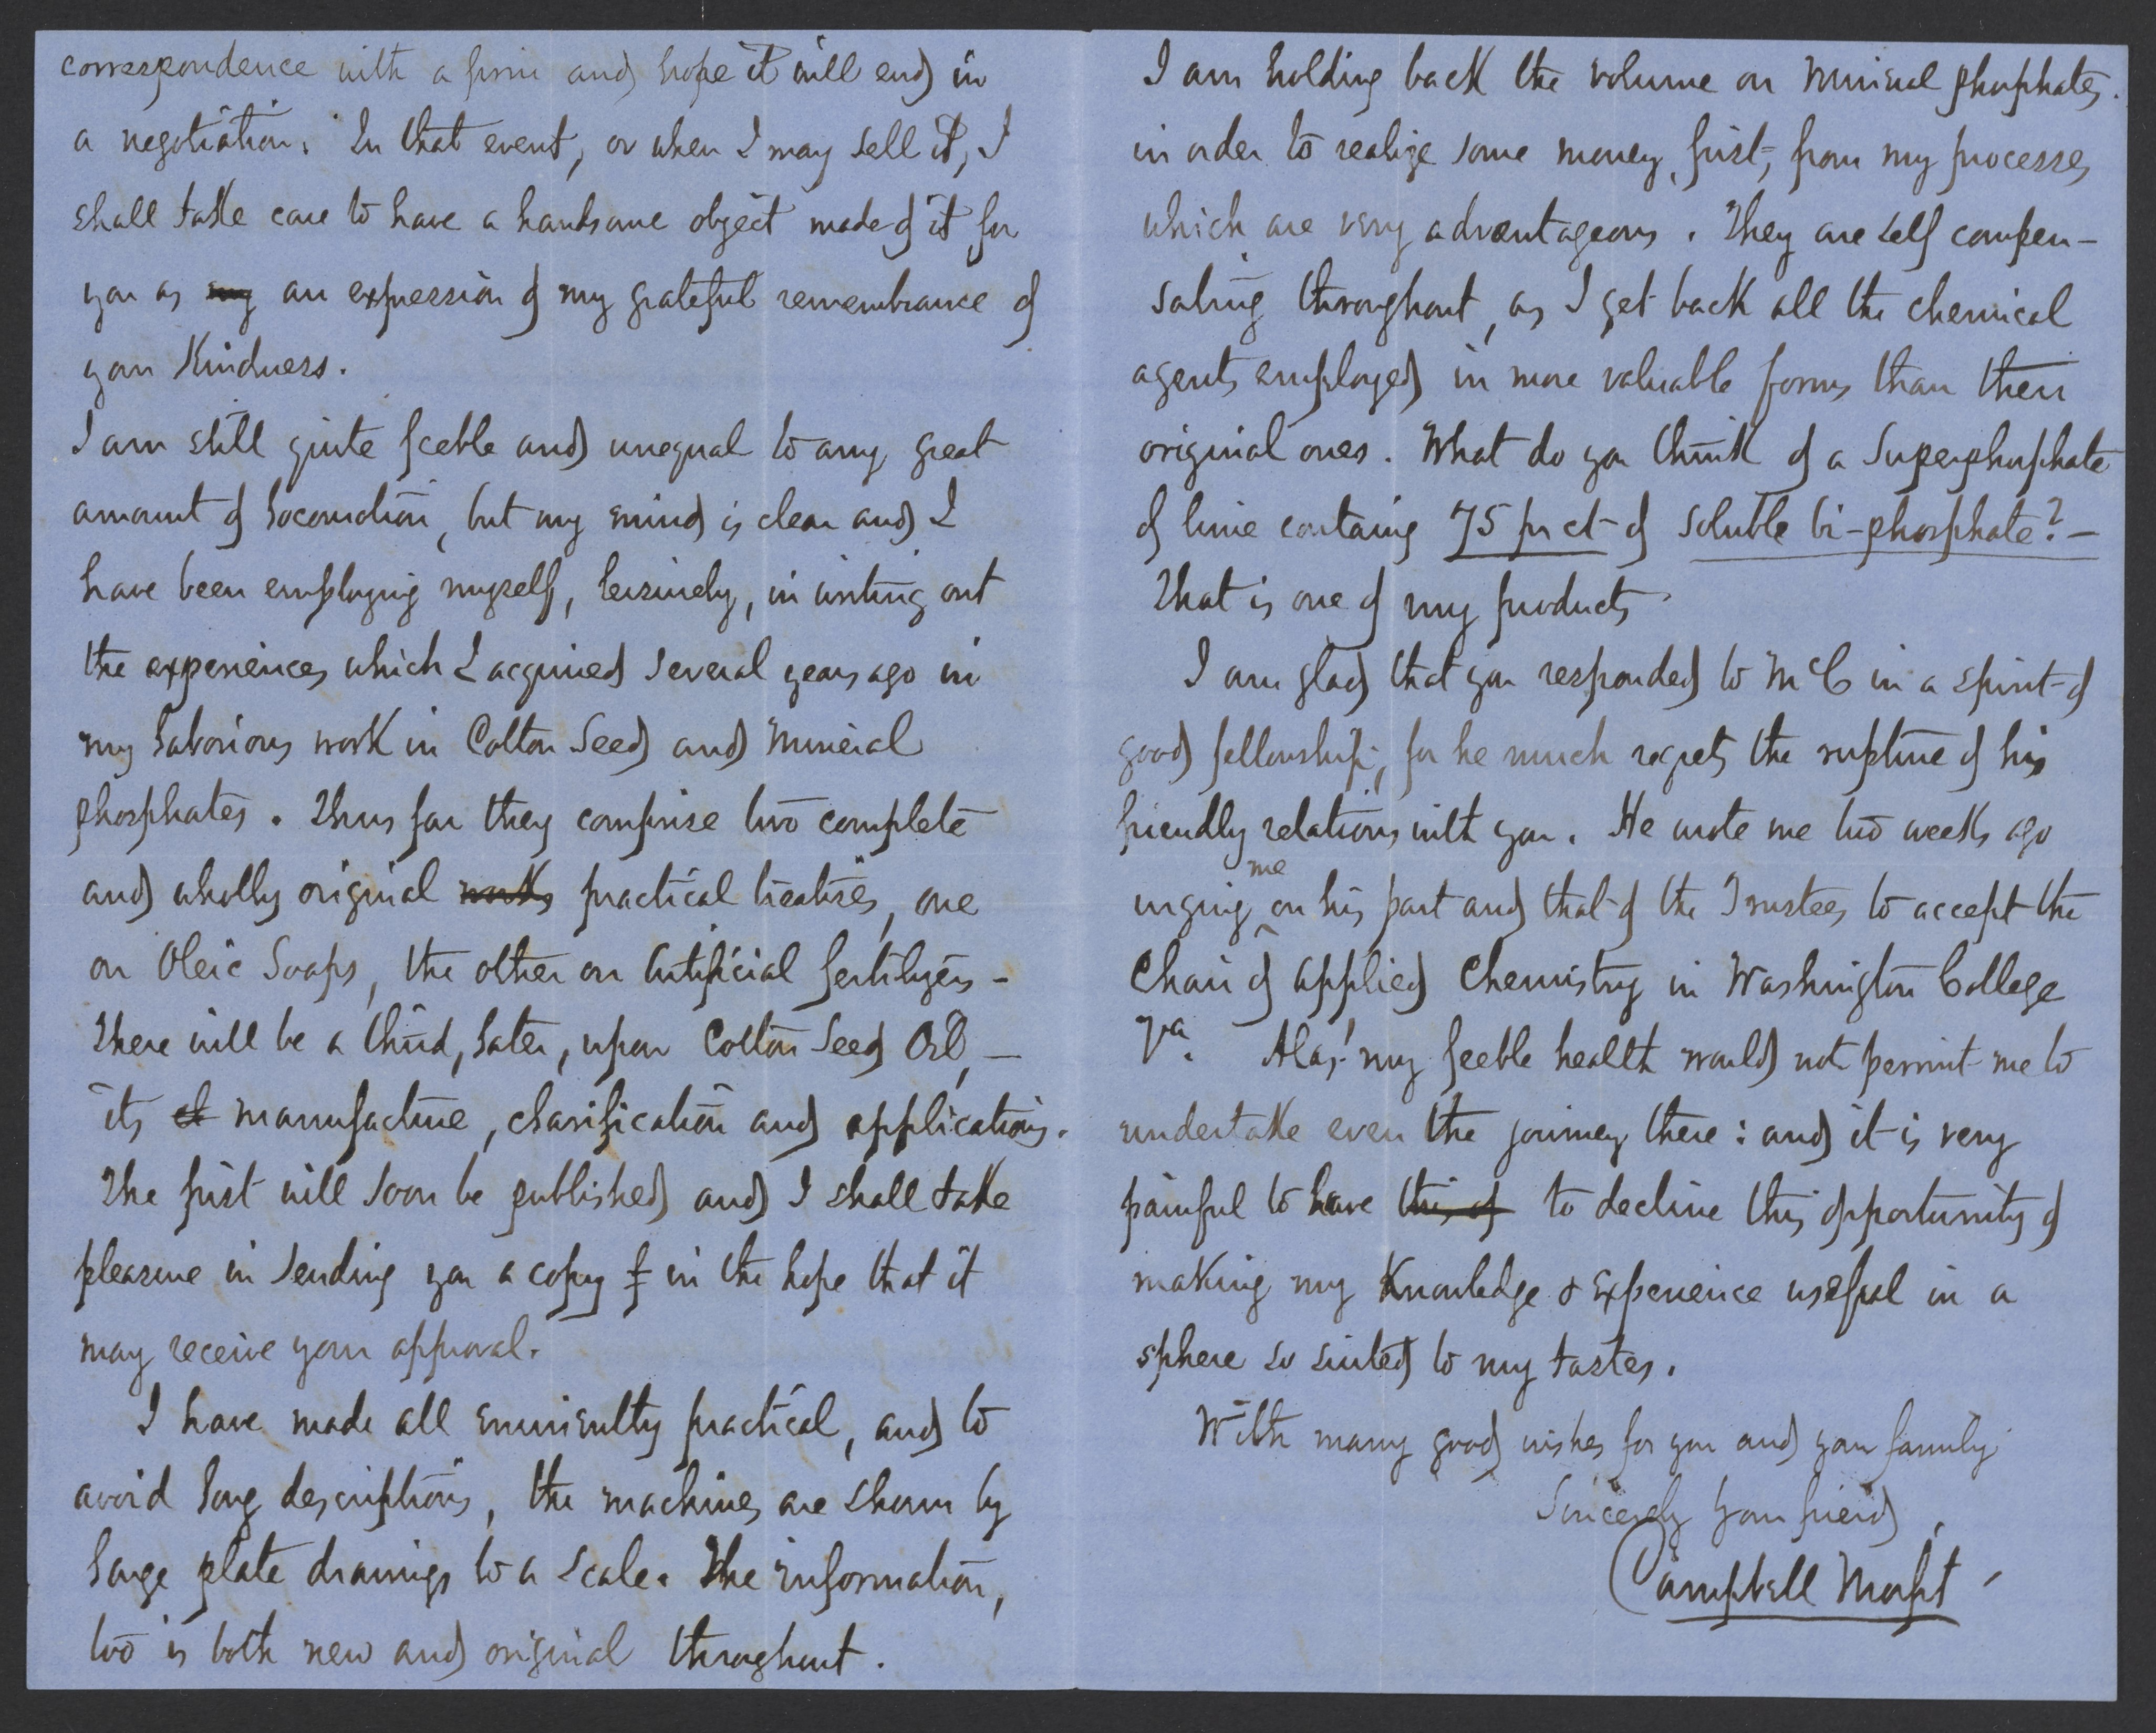 correspondence with a firm and hope it will end in
a negotiation. In that event, or when I may sell it, I
shall take care to have a handsome object made of it for
you as my an expression of my grateful remembrance of
your Kindness.
I am still quite feeble and unequal to any great
amount of locomotion, but my mind is clear and I
have been employing myself, leisurely, in writing out
the experiences which I acquired several years ago in
my laborious work in Cotton Seed and Mineral
phosphates. Thus far they comprise two complete
and wholly original works practical treatises, one
on Oleic Soaps, the other on Artificial fertilizers -
There will be a third, later, upon Cotton Seed Oil, —
its manufacture, clarification and applications.
The first will soon be published and I shall take
pleasure in sending you a copy in the hope that it
may receive your approval.
I have made all eminently practical, and to
avoid long descriptions, the machines are shown by
large plate drawings to a scale. The information,
too is both new and original throughout.
I am holding back the volume on mineral phosphates
in order to realize some money, first, from my processes
which are very advantageous. They are self compen-
sating throughout, as I get back all the chemical
agents employed in more valuable forms than their
original ones. What do you think of a Superphosphate
of lime containg 75 pr ct of soluble bi-phosphate? —
That is one of my products.
I am glad that you responded to McC in a spirit of
good fellowship; for he much regrets the rupture of his
friendly relations with you. He wrote me two weeks ago
urging me on his part and that of the Trustees to accept the
Chair of applied Chemistry in Washington College
Va. Alas! my feeble health would not permit me to
undertake even the journey there: and it is very
painful to have this of to decline this opportunity of
making my Knowledge & experience useful in a
sphere so suited to my tastes.
With many good wishes for you and your family
Sincerely your friend,
Campbell Morfit